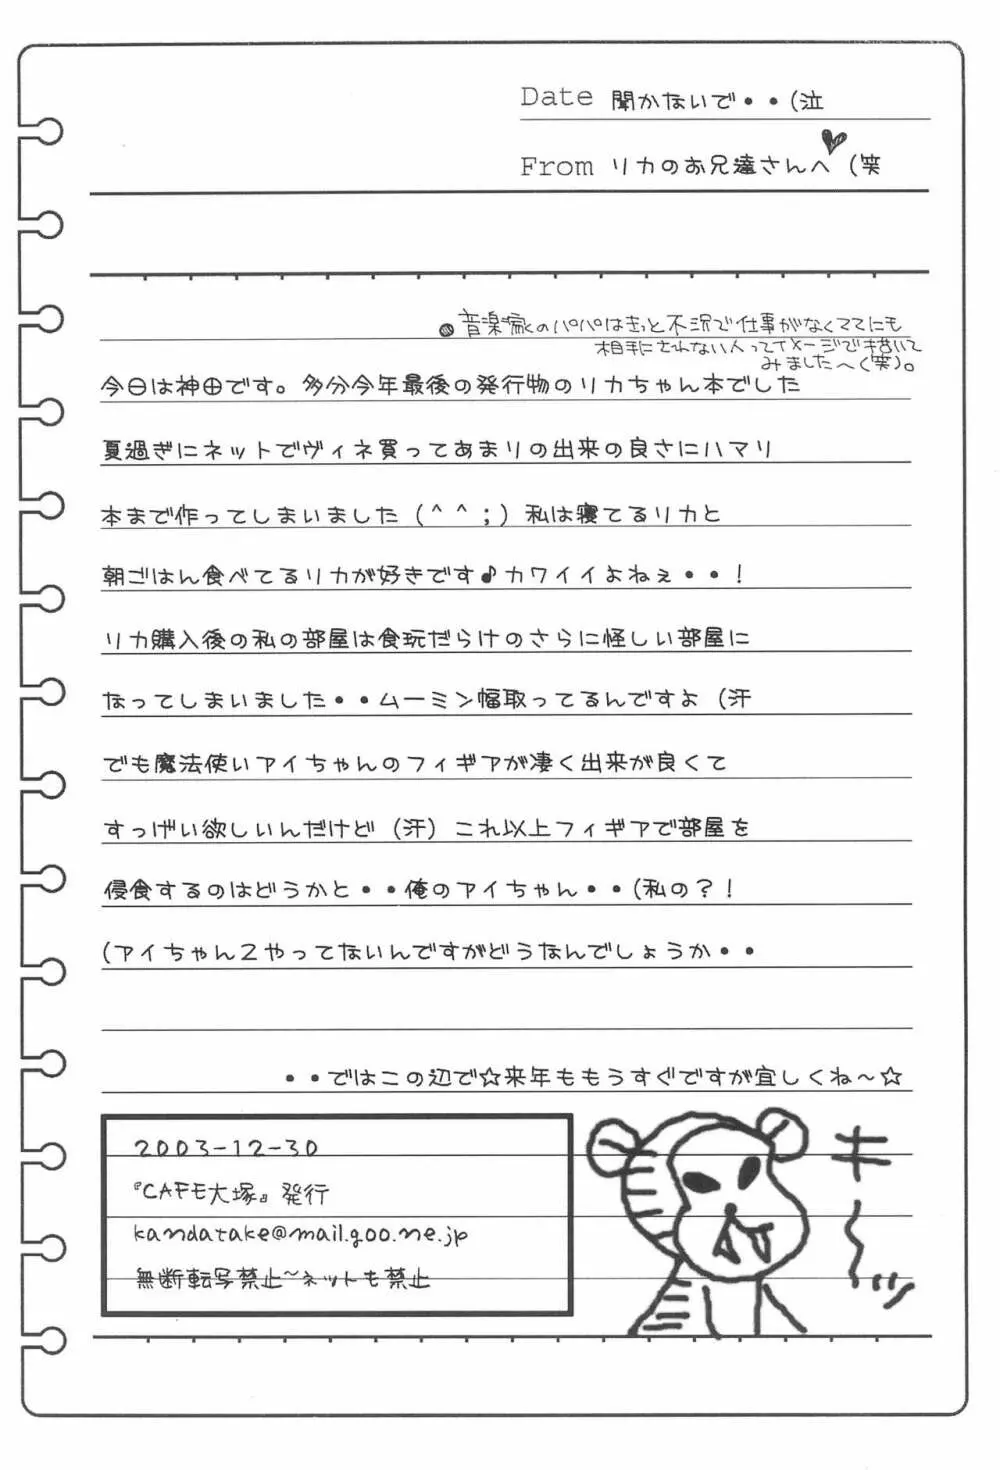 Date 聞かないで・・(泣
From リカのお兄達さんへ (笑
●音楽家のパパはきっと不況で仕事がなくママにも
相手にされない人ってイメージで描いて
みましたへ(笑)。
今日は神田です。多分今年最後の発行物のリカちゃん本でした
夏過ぎにネットでヴィネ買ってあまりの出来の良さにハマリ
本まで作ってしまいました (^^;) 私は寝てるリカと
朝ごはん食べてるリカが好きです♪カワイイよねぇ・・!
リカ購入後の私の部屋は食玩だらけのさらに怪しい部屋に
なってしまいました・・ムーミン幅取ってるんですよ (汗
でも魔法使いアイちゃんのフィギアが凄く出来が良くて
すっげい欲しいんだけど (汗) これ以上フィギアで部屋を
侵食するのはどうかと・・俺のアイちゃん・・(私の?!
(アイちゃん2やってないんですがどうなんでしょうか・・
・・ではこの辺で☆来年ももうすぐですが宜しくね~☆
2003-12-30
『CAFE大塚』発行
kandatake@mail.goo.ne.jp
無断転写禁止~ネットも禁止
キ~ッ